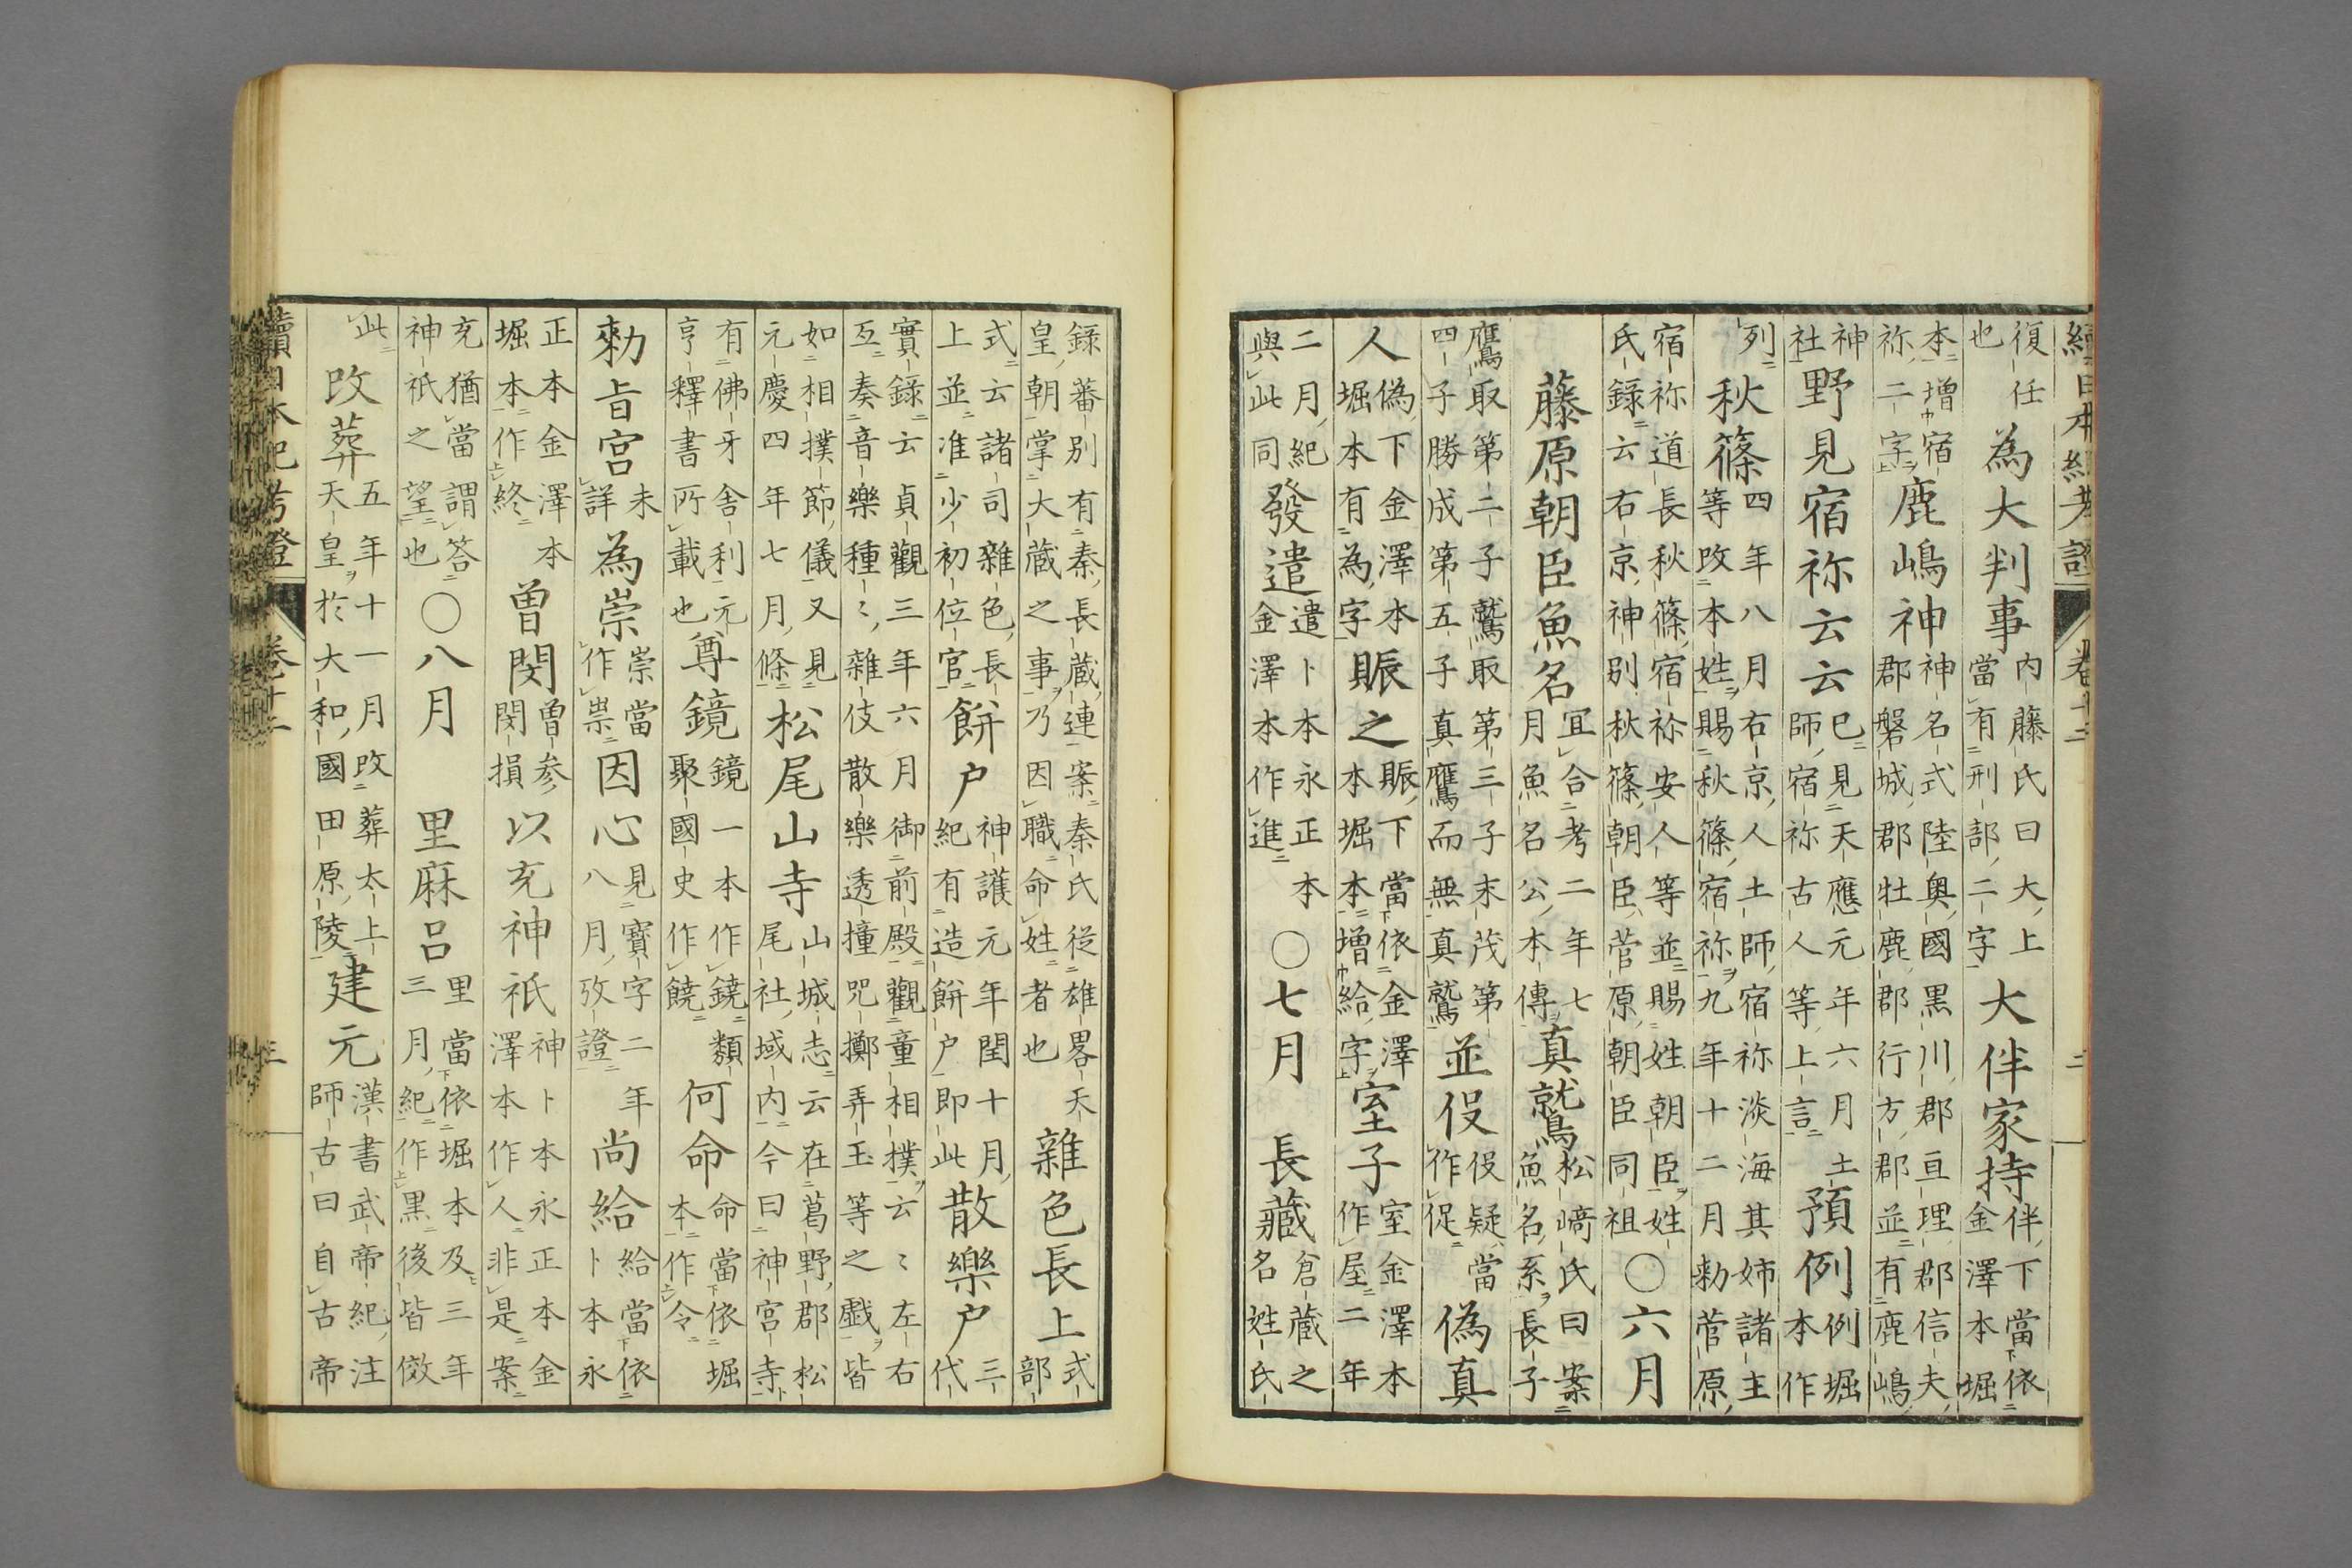 續日本紀考證　卷十二　二
復任也為大判事內藤氏曰大上當有刑部二字大伴家持伴下當依金澤本堀
本增宿祢二字鹿嶋神神名式陸奧國黒川郡亘理郡信夫郡磐城郡牡鹿郡行方郡並有鹿嶋
神社野見宿祢云云已見天應元年六月土師宿祢古人等上言預例例堀本作
列秋篠四年八月右京人土師宿祢淡海其姉諸主等改本姓賜秋篠宿祢九年十二月勅菅原
宿祢道長秋篠宿祢安人等並賜姓朝臣姓氏錄云右京神別秋篠朝臣菅原朝臣同祖〇六月
藤原朝臣魚名冝合考二年七月魚名公本傳真鷲松﨑氏曰案魚名系長子
鷹取第二子鷲取第三子末茂第四子勝成第五子真鷹而無真鷲並伇伇疑當作促偽真
人偽下金澤本堀本有為字賑之賑下當依金澤本堀本增給字室子室金澤本作屋二年
二月紀與此同發遣遣卜本永正本金澤本作進〇七月　長藏倉蔵之名姓氏
録蕃別有秦長蔵連案秦氏従雄畧天皇朝掌大蔵之事乃因職命姓者也雜色長上式部
式云諸司雜色長上並准少初位官餅户神護元年閏十月紀有造餅户即此散樂户三代
實錄云貞觀三年六月御前殿觀童相撲云〻左右互奏音樂種〻雜伎散樂透撞咒擲弄玉等之戯皆
如相撲節儀又見元慶四年七月條松尾山寺山城志云在葛野郡松尾社域内今曰神宮寺
有佛牙舎利元亨釋書所載也尊鏡鏡一本作鐃類聚國史作饒何命命當依堀本作令
勅旨宮未詳為崇崇當作祟因心見寶字二年八月攷證尚給給當依卜本永
正本金澤本堀本作終曽閔曽參閔損以充神祇神卜本永正本金澤本作人非是案
充猶當謂答神祇之望也〇八月　里麻呂里當依堀本及三年三月紀作黒後皆倣
此改葬五年十一月改葬太上天皇於大和國田原陵建元漢書武帝紀注師古曰自古帝
續日本紀考證　卷十二　三